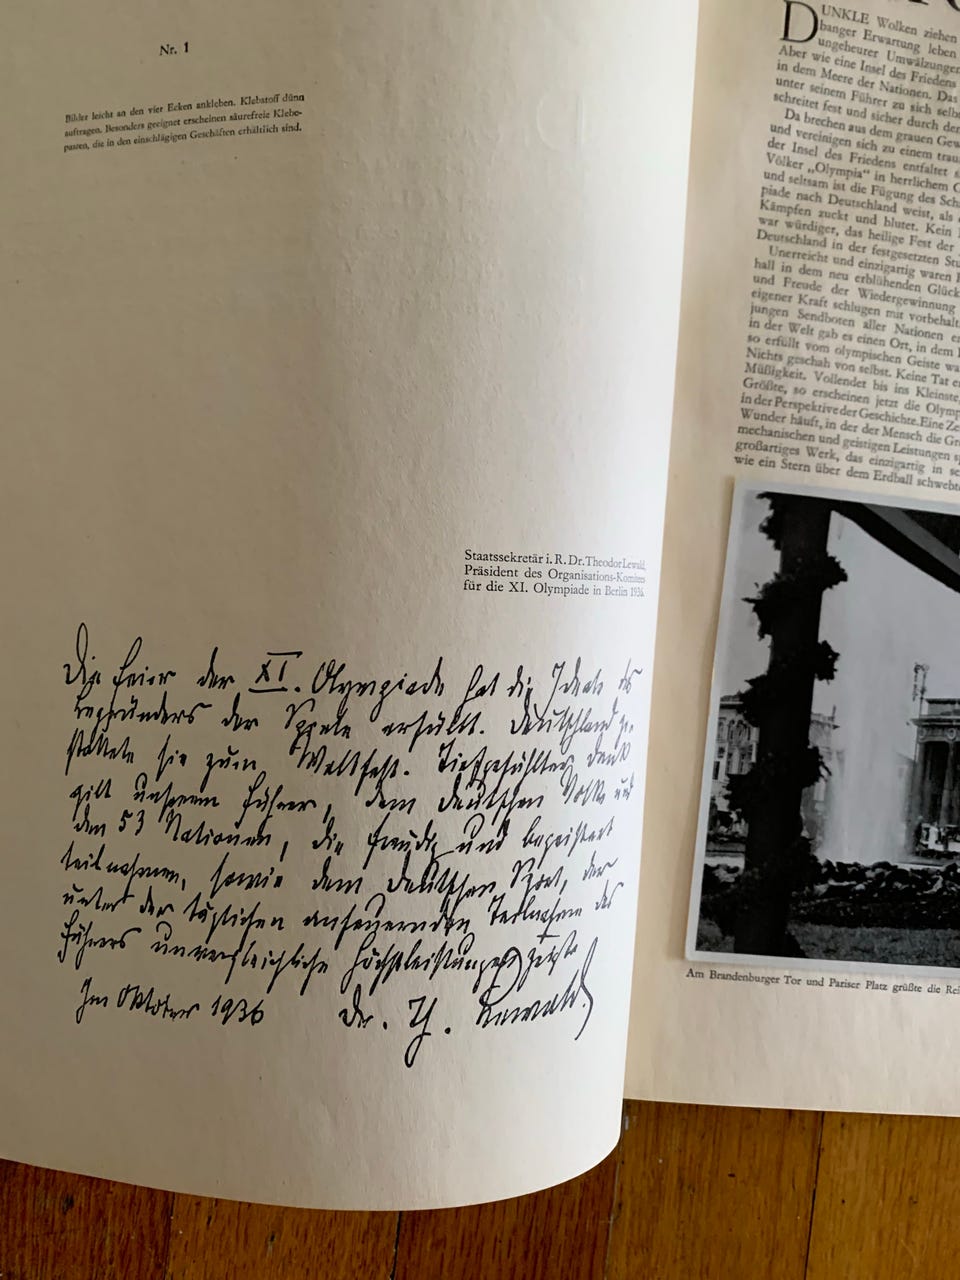 Nr. 1
Bilder leicht an den vier Ecken ankleben. Klebstoff dünn
auftragen. Besonders geeignet erscheinen säurefreie Klebe-
pasten, die in den einschlägigen Geschäften erhältlich sind.
Staatssekretär i. R. Dr. Theodor Lewald,
Präsident des Organisations-Komitees
für die XI. Olympiade in Berlin 1936.
Die Feier der XI. Olympiade hat die Ideale des
Begründers der Spiele erfüllt. Deutschland ge-
staltete sie zum Weltfest. Tiefgefühlter Dank
gilt unserem Führer, dem deutschen Volke und
den 53 Nationen, die freudig und begeistert
teilnahmen, sowie dem deutschen Sport, der
unter der täglichen anfeuernden Teilnahme des
Führers unvergleichliche Höchstleistungen zeigte
Im Oktober 1936 Dr. Th. Lewald
DUNKLE Wolken ziehen
banger Erwartung leben
ungeheurer Umwälzungen
Aber wie eine Insel des Friedens
in dem Meere der Nationen. Das
unter seinem Führer zu sich selbs
schreitet fest und sicher durch der
Da brechen aus dem grauen Gew
und vereinigen sich zu einem trau
der Insel des Friedens entfaltet s
Völker „Olympia“ in herrlichem G
und seltsam ist die Fügung des Sch
piade nach Deutschland weist, als
Kämpfen zuckt und blutet. Kein
war würdiger, das heilige Fest der
Deutschland in der festgesetzten Stu
Unerreicht und einzigartig waren
hall in dem neu erblühenden Glück
und Freude der Wiedergewinnung
eigener Kraft schlugen mit vorbehalt
jungen Sendboten aller Nationen e
in der Welt gab es einen Ort, in dem
so erfüllt vom olympischen Geiste wa
Nichts geschah von selbst. Keine Tat e
Müßigkeit. Vollendet bis ins Kleinste,
Größte, so erscheinen jetzt die Olymp
in der Perspektive der Geschichte. Eine Ze
Wunder häuft, in der der Mensch die Gr
mechanischen und geistigen Leistungen sp
großartiges Werk, das einzigartig in se
wie ein Stern über dem Erdball schwebt
Am Brandenburger Tor und Pariser Platz grüßte die Rei